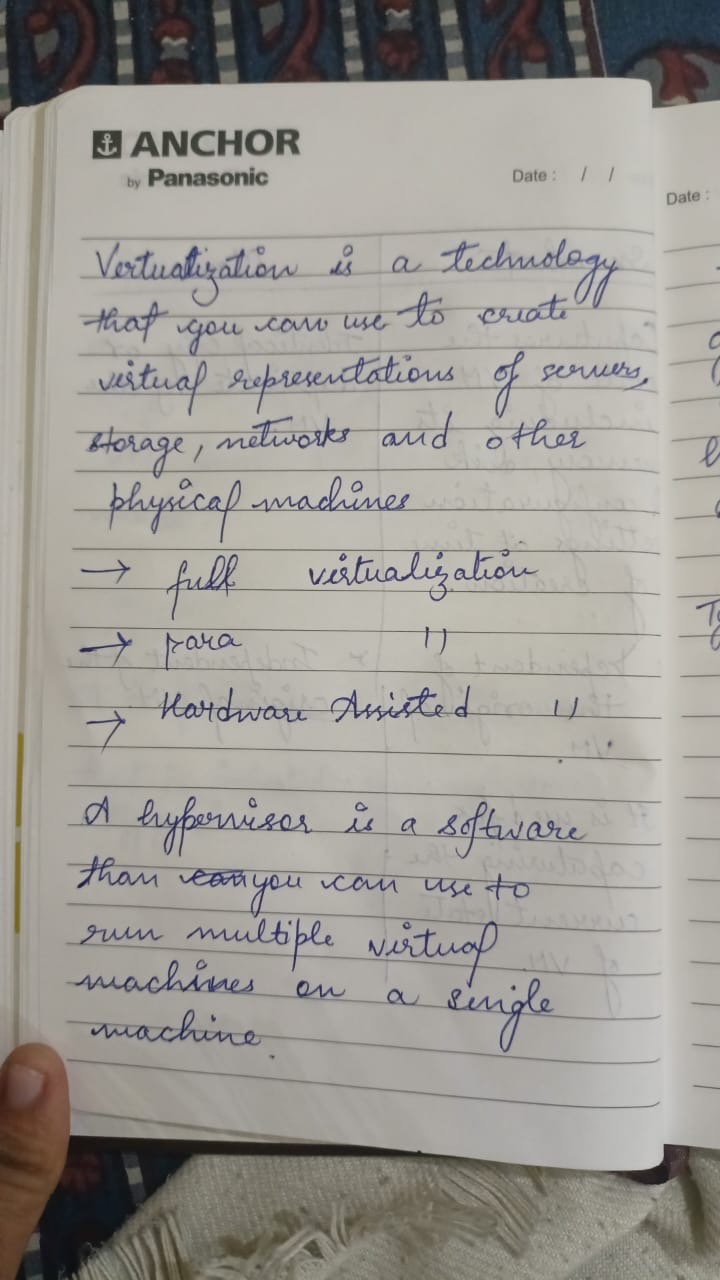 ANCHOR
by Panasonic
Date : / /
Date :
Vertualization is a technology
that you can use to create
virtual representations of servers,
storage, networks and other
physical machines
→ full virtualization
→ para "
→ Hardware Assisted "
A hypervisor is a software
than can you can use to
run multiple virtual
machines on a single
machine.